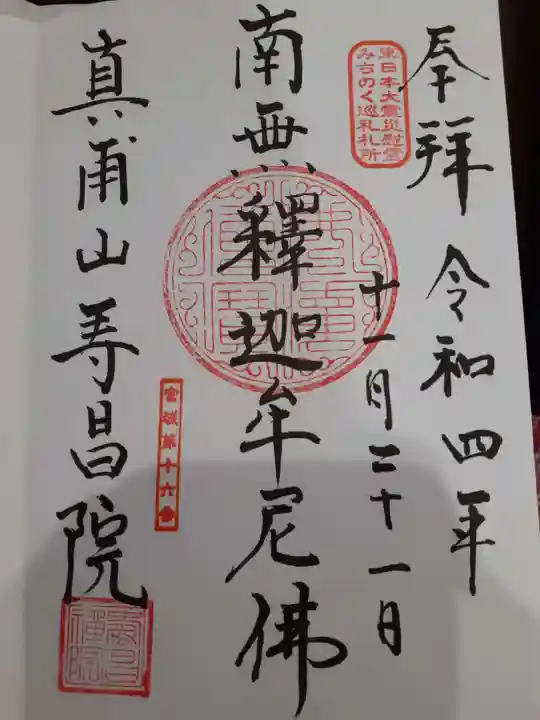 奉拝 令和四年
十一月二十一日
東日本大震災慰霊
みちのく巡礼札所
南無釋迦牟尼佛
宮城第十六番
真甫山寿昌院